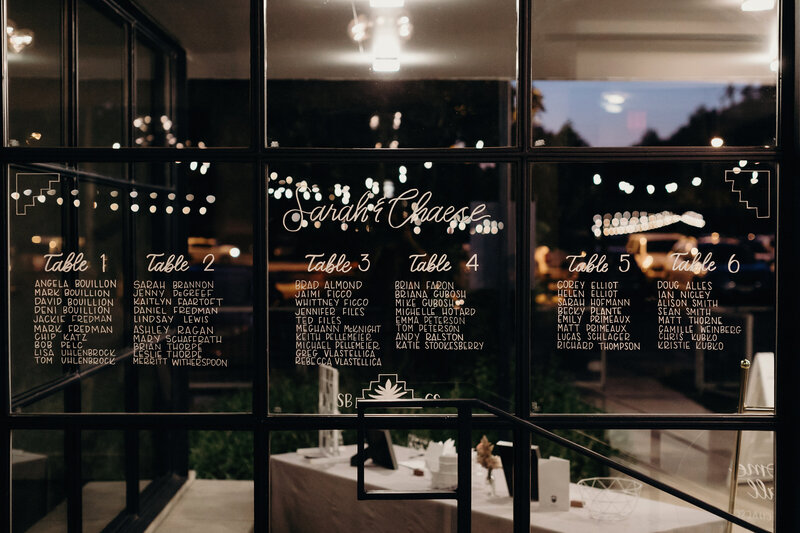 Sarah & Chaese
Table 1
ANGELA BOUILLON
MARK BOUILLON
DAVID BOUILLON
DENI BOUILLON
JACKIE FREDMAN
MARK FREDMAN
CHIP KATZ
BOB PELC
LISA UHLENBROCK
TOM UHLENBROCK
Table 2
SARAH BRANNON
JENNY DEGREEF
KAITLYN FAARTOFT
DANIEL FREDMAN
LINDSAY LEWIS
ASHLEY RAGAN
MARY SCHAFRATH
BRIAN THORPE
LESLIE THORPE
MERRITT WITHERSPOON
Table 3
BRAD ALMOND
JAIMI FICCO
WHITTNEY FICCO
JENNIFER FILES
TED FILES
MEGHANN MCKNIGHT
KEITH PELLEMEIER
MICHAEL PELLEMEIER
GREG VLASTELICA
REBECCA VLASTELICA
Table 4
BRIAN FARON
BRIANA GUBOSH
MIKE GUBOSH
MICHELLE HOTARD
EMMA PETERSON
TOM PETERSON
ANDY RALSTON
KATIE STOOKESBERRY
Table 5
COREY ELLIOT
HELEN ELLIOT
SARAH HOFMANN
BECKY PLANTE
EMILY PRIMEAUX
MATT PRIMEAUX
LUCAS SCHLAGER
RICHARD THOMPSON
Table 6
DOUG ALLES
IAN NICLEY
ALISON SMITH
SEAN SMITH
MATT THORNE
CAMILLE WEINBERG
CHRIS KUBKO
KRISTIE KUBKO
SB
CS